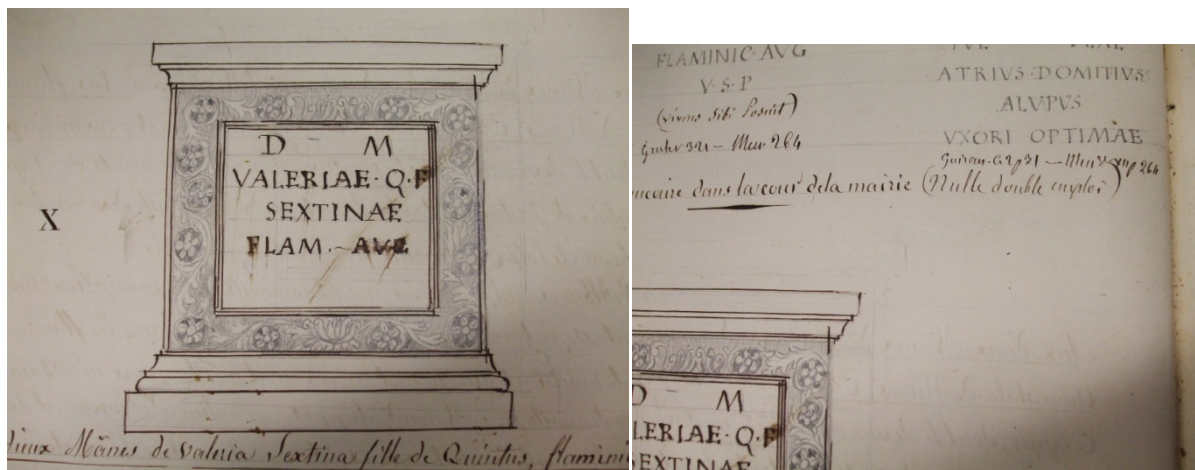 D M
VALERIAE · Q · F
SEXTINAE
FLAM. AVG
X
Mânes de Valeria Sextina fille de Quintus,
FLAMINIC · AVG
V · S · P
(vivens sibi Posuit)
Gruter 321 — Men. 264
ATRIVS · DOMITIVS
ALUPUS
VXORI OPTIMAE
dans la cour de la mairie (Nulle double emploi)
D M
LERIAE · Q · F
EXTINAE